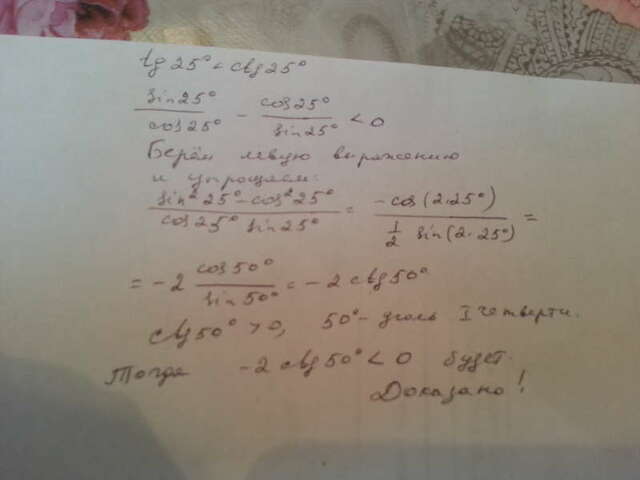 tg 25° < ctg 25°
sin 25° / cos 25° - cos 25° / sin 25° < 0
Берём левую выражению
и упрощаем:
sin² 25° - cos² 25° / cos 25° sin 25° = -cos (2·25°) / ½ sin (2·25°) =
= -2 cos 50° / sin 50° = -2 ctg 50°
ctg 50° > 0, 50° - угол I четверти.
Тогда -2 ctg 50° < 0 будет.
Доказано!